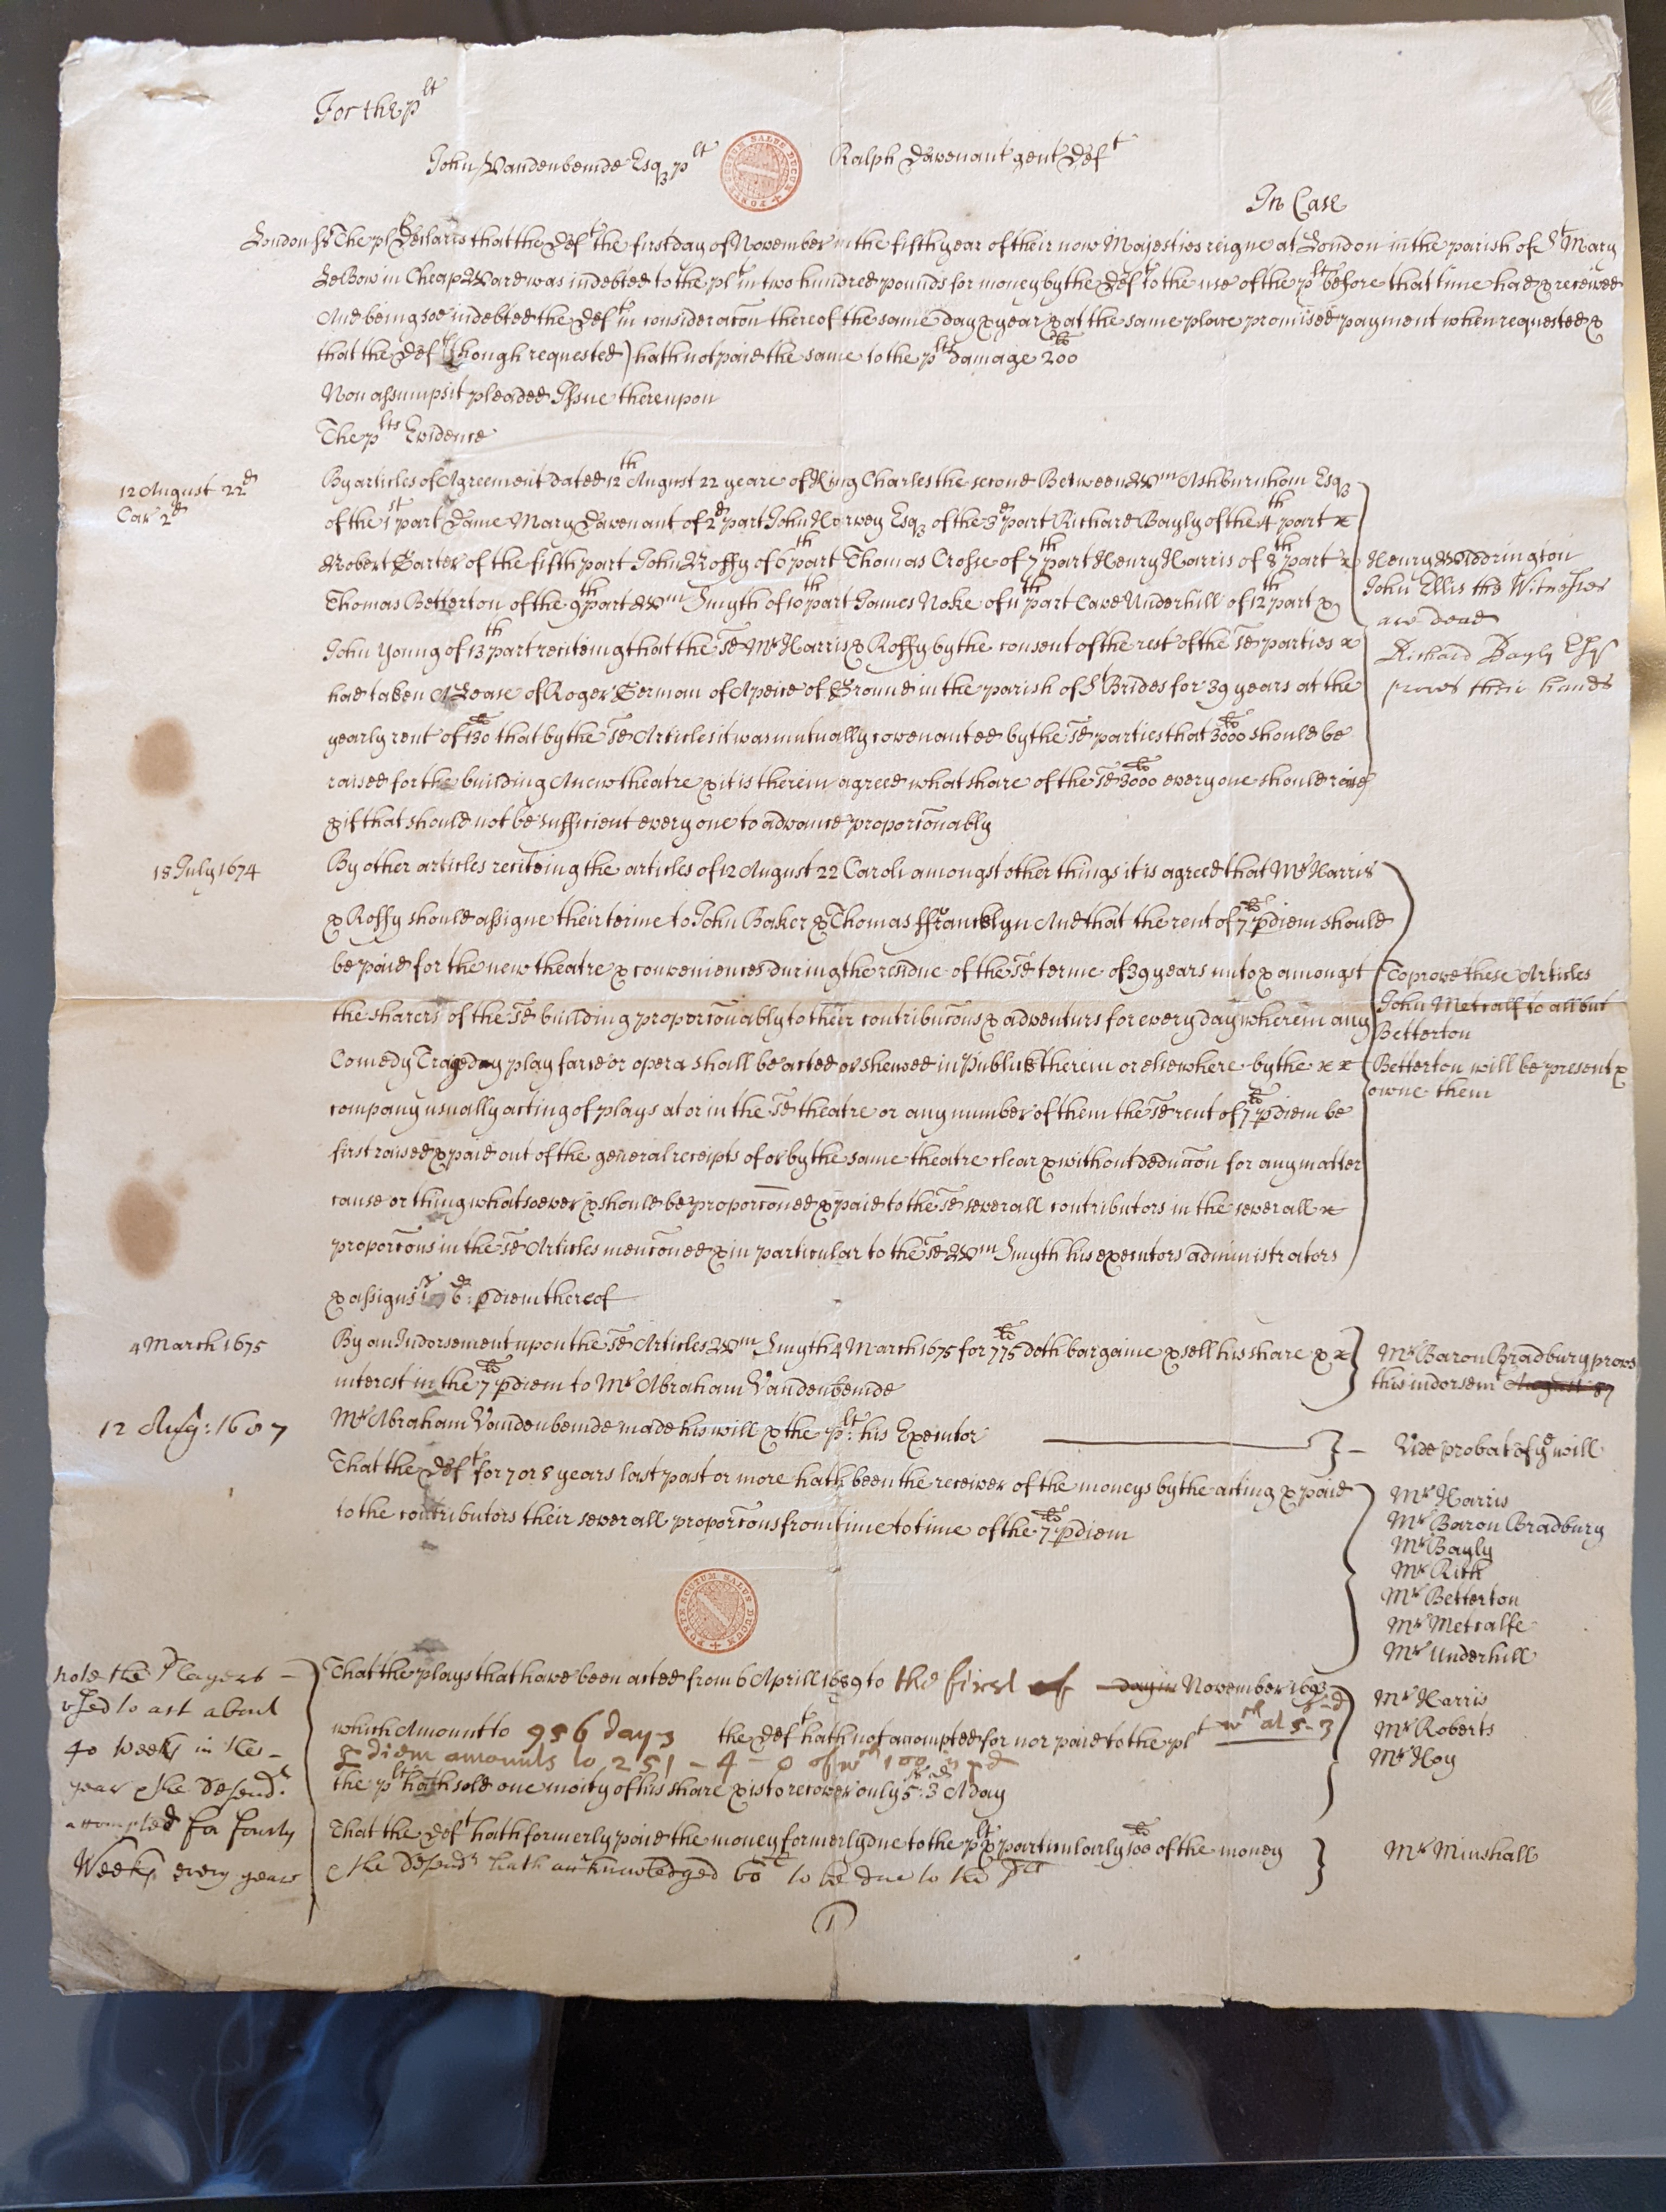 For the plt
John Vandenbemde Esqz plt Ralph Davenant gent Deft
In Case
London ss The plt Declares that the Deft the first day of November in the fifth year of their now Majesties reigne at London in the parish of St Mary
LeBow in Cheap Ward was indebted to the plt in two hundred pounds for money by the Deft to the use of the plt before that time had & received
And being soe indebted the Deft in consideracon thereof the same day & year & at the same place promised payment when requested &
that the Deft (though requested) hath not paid the same to the plts damage 200li
Non assumpsit pleaded Issue thereupon
The plts Evidence
12 August 22d
Car 2d
By articles of Agreement dated 12th August 22 yeare of King Charles the second Between Wm Ashburnham Esqz
of the 1st part Dame Mary Davenant of 2d part John Harvey Esqz of the 3d part Richard Bayly of the 4th part x
Robert Carter of the fifth part John Roffy of 6th part Thomas Crosse of 7th part Henry Harris of 8th part x
Thomas Betterton of the 9th part Wm Smyth of 10th part James Noke of 11th part Cave Underhill of 12th part &
John Young of 13th part reciteing that the sd Mr Harris & Roffy by the consent of the rest of the sd parties x
had taken A Lease of Roger German of A peice of Ground in the parish of St Brides for 39 years at the
yearly rent of 130li that by the sd Articles it was mutually covenanted by the sd parties that 3000li should be
raised for the building A new theatre & it is therein agreed what share of the sd 3000li every one should
& if that should not be sufficient every one to advance proporconably
Henry Widdrington
John Ellis the Witnesses
are dead
Richard Bayly Esqr
proves their hands
18 July 1674
By other articles reciteing the articles of 12 August 22 Caroli amongst other things it is agreed that Mr Harris
& Roffy should assigne their terme to John Baker & Thomas ffrancklyn And that the rent of 7li p diem should
be paid for the new theatre & conveniences during the residue of the sd terme of 39 years unto & amongst
the sharers of the sd building proporconably to their contribucons & adventurs for every day wherein any
Comedy Tragedy play farce or opera shall be acted or shewed in Publick therein or elsewhere by the x x
company usually acting of plays at or in the sd theatre or any number of them the sd rent of 7li p diem be
first raised & paid out of the generall receipts of or by the same theatre clear & without deduccon for any matter
cause or thing whatsoever & should be proporconed & paid to the sd severall contributors in the severall x
proporcons in the sd Articles menconed & in particular to the sd Wm Smyth his executors administrators
& assigns 6d p diem thereof
To prove these Articles
John Metcalf to all but
Betterton
Betterton will be present &
owne them
4 March 1675
By an Indorsement upon the sd Articles Wm Smyth 4 March 1675 for 775li doth bargaine & sell his share & x
interest in the 7li p diem to Mr Abraham Vandenbemde
Mr Baron Bradbury proves
this indorsemt August 87
12 Aug: 1687
Mr Abraham Vandenbemde made his will & the plt: his Executor
Vide probat of ye will
That the Deft for 7 or 8 years last past or more hath been the receiver of the moneys by the acting & paid
to the contributors their severall proporcons from time to time of the 7li p diem
Mr Harris
Mr Baron Bradbury
Mr Bayly
Mr Rich
Mr Betterton
Mr Metcalfe
Mr Underhill
note the Players
used to act about
40 weeks in the
year & the Defendt
accompted for fourty
Weeks every year
That the plays that have been acted from 6 Aprill 1689 to the first of day in November 1693
which Amount to 956 days the Deft hath not accompted for nor paid to the plt wch at 5s-3d
p diem amounts to 251 - 4 - 0 of wch 100 is pd
the plt hath sold one moity of his share & is to recover only 5s: 3d A day
Mr Harris
Mr Roberts
Mr Hoy
That the Deft hath formerly paid the money formerly due to the plt & particularly 100li of the money
& the Defendt hath acknowledged 60li to be due to the plt
Mr Minshall
FORTE SCUTUM SALUS DUCUM
FORTE SCUTUM SALUS DUCUM